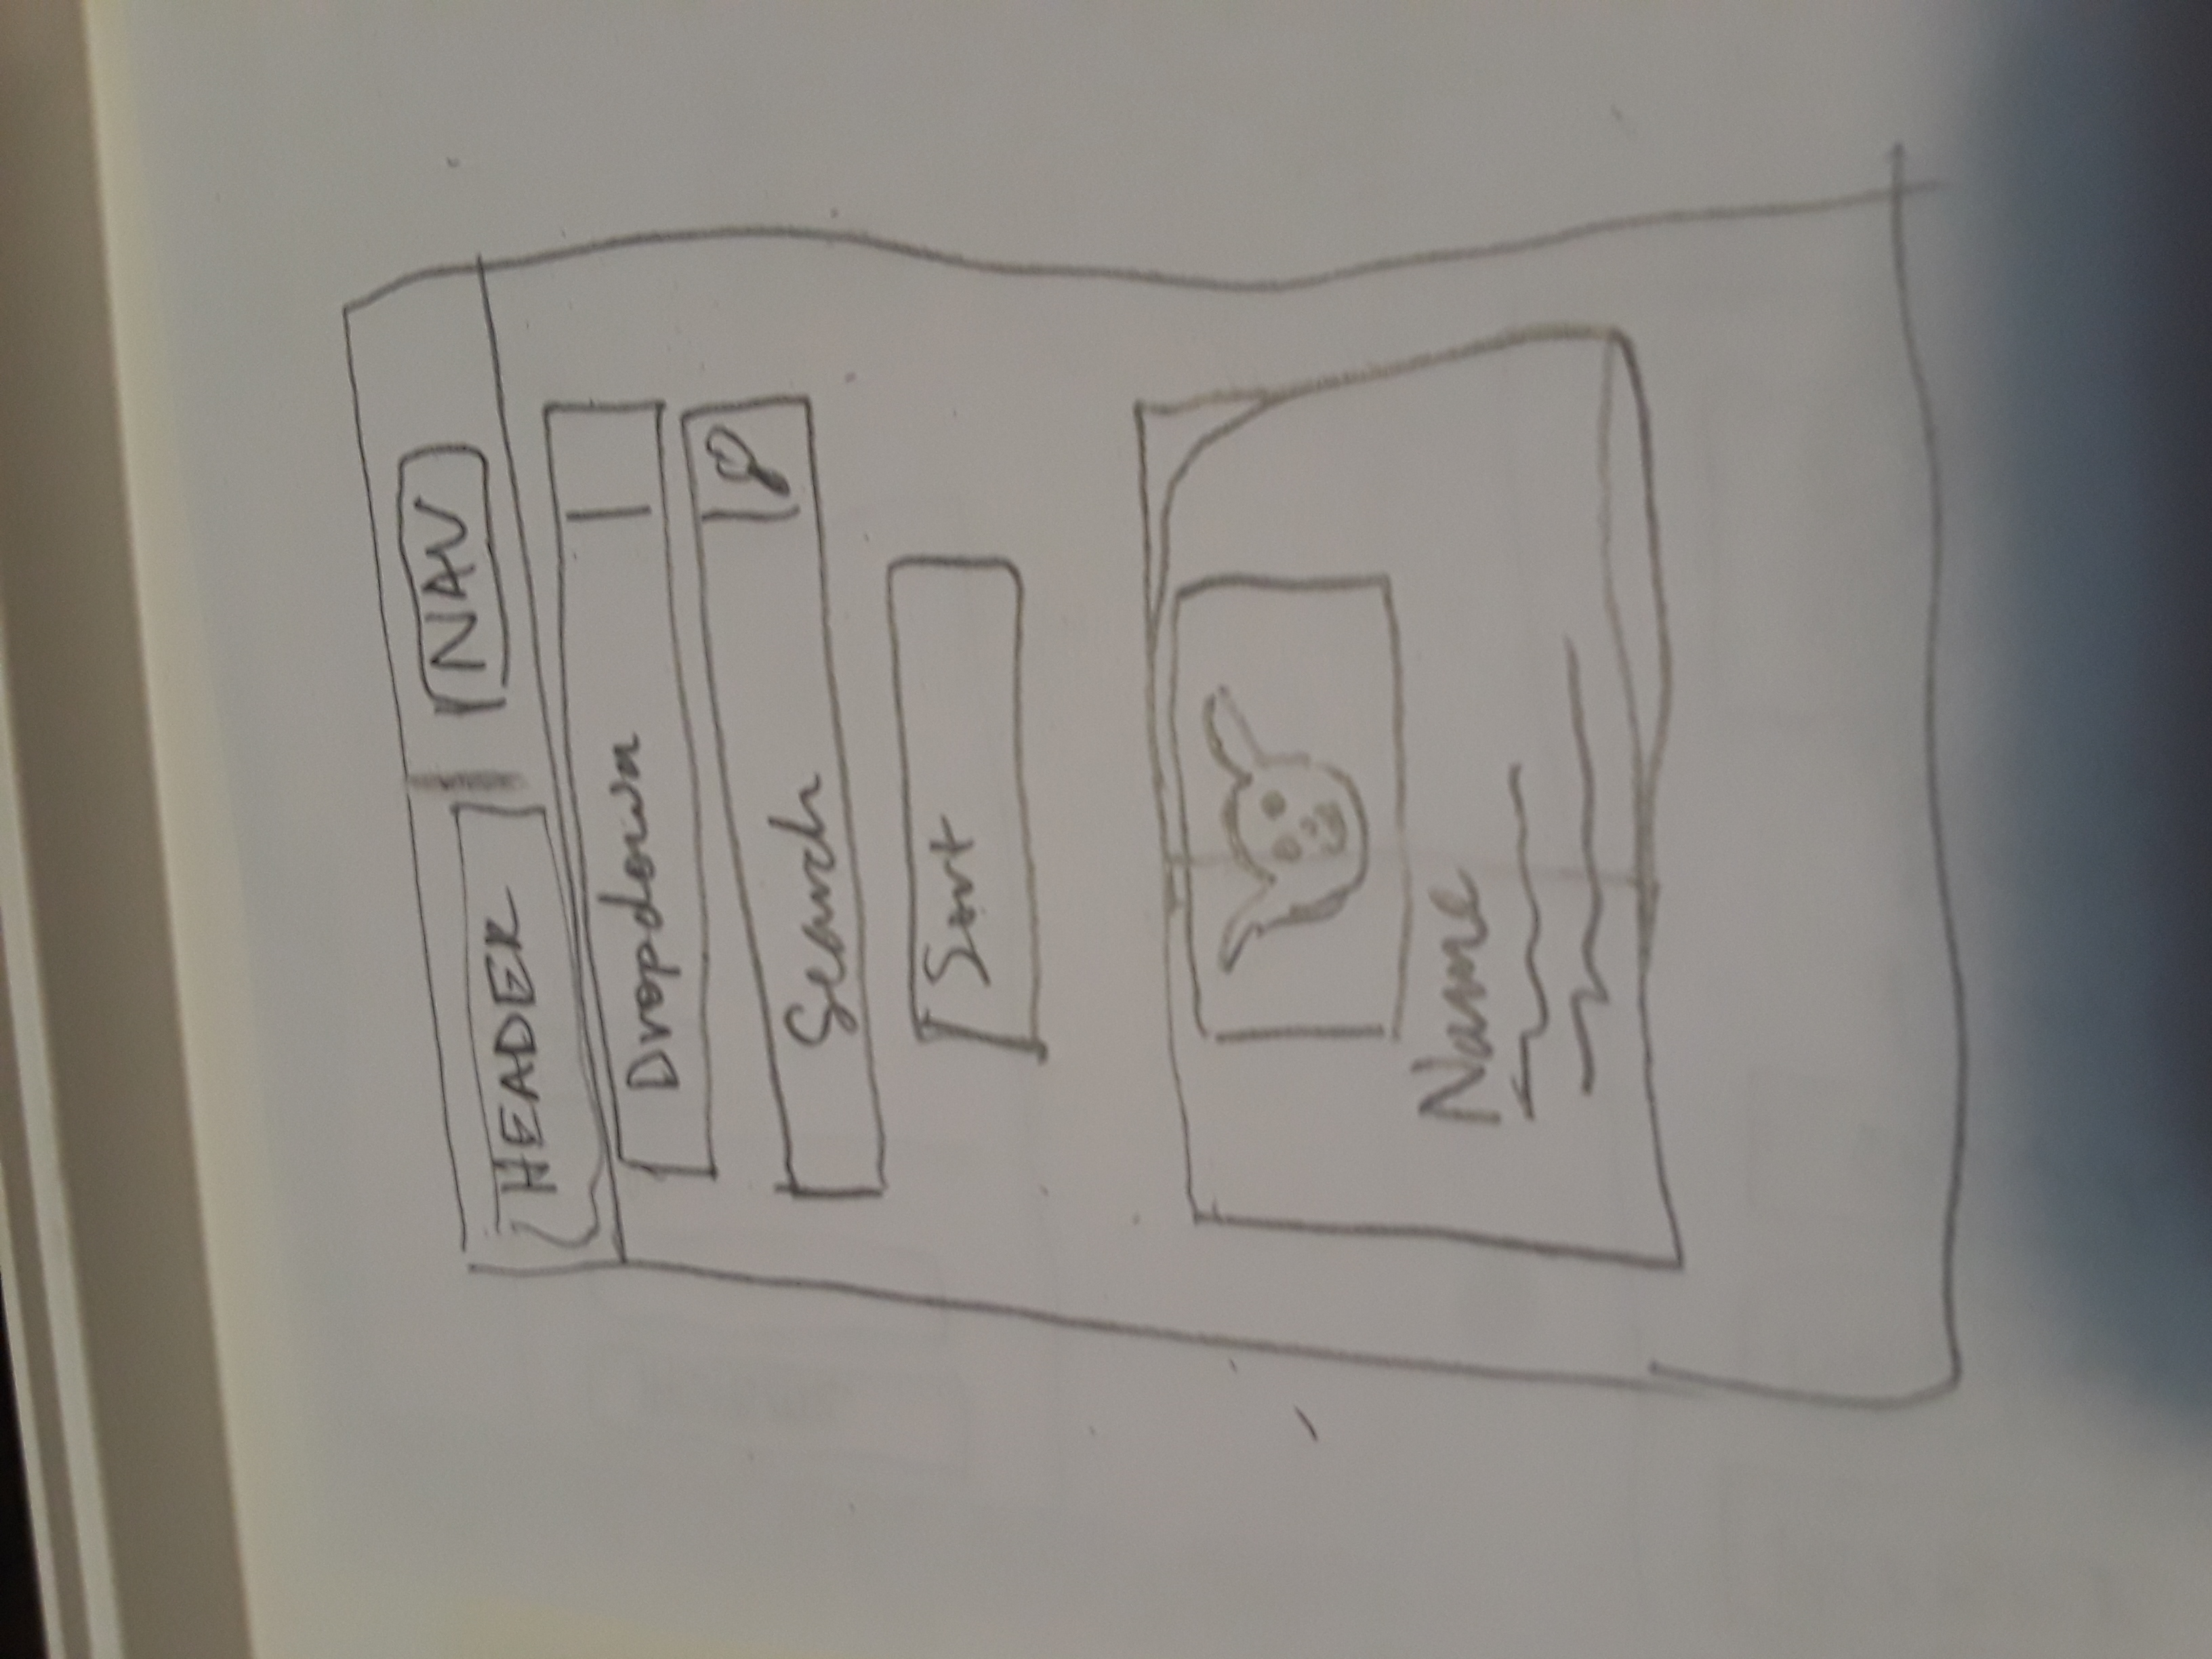 HEADER
NAV
Dropdown
Search
Sort
Name